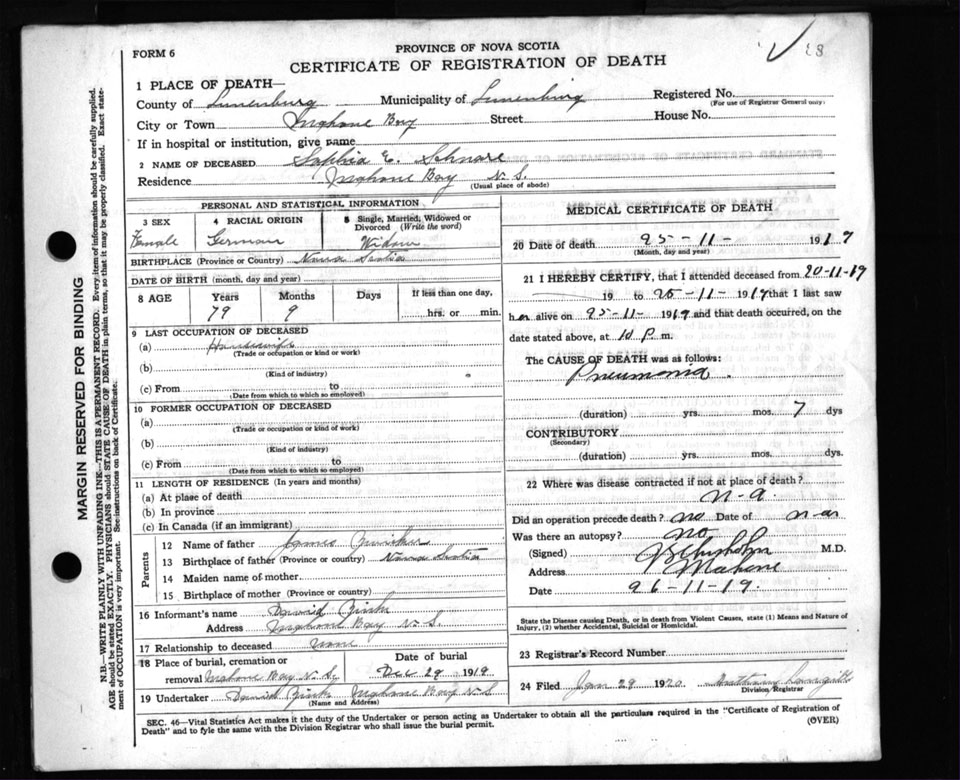 FORM 6
PROVINCE OF NOVA SCOTIA
CERTIFICATE OF REGISTRATION OF DEATH
1 PLACE OF DEATH—
County of Lunenburg Municipality of Lunenburg Registered No.
(For use of Registrar General only)
City or Town Mahone Bay Street House No.
If in hospital or institution, give name
2 NAME OF DECEASED Sophia E. Schnare
Residence Mahone Bay N. S.
(Usual place of abode)
PERSONAL AND STATISTICAL INFORMATION
3 SEX 4 RACIAL ORIGIN 5 Single, Married, Widowed or Divorced (Write the word)
Female German Widow
BIRTHPLACE (Province or Country) Nova Scotia
DATE OF BIRTH (month, day and year)
8 AGE Years Months Days If less than one day,
79 9 hrs. or min.
9 LAST OCCUPATION OF DECEASED
(a) Housewife
(Trade or occupation or kind or work)
(b)
(Kind of industry)
(c) From to
(Date from which to which so employed)
10 FORMER OCCUPATION OF DECEASED
(a)
(Trade or occupation or kind of work)
(b)
(Kind of industry)
(c) From to
(Date from which to which so employed)
11 LENGTH OF RESIDENCE (In years and months)
(a) At place of death
(b) In province
(c) In Canada (if an immigrant)
Parents
12 Name of father James
13 Birthplace of father (Province or country) Nova Scotia
14 Maiden name of mother
15 Birthplace of mother (Province or country)
16 Informant's name David Zink
Address Mahone Bay N. S.
17 Relationship to deceased none
18 Place of burial, cremation or removal Mahone Bay N. S. Date of burial Dec 29 1919
19 Undertaker David Zink Mahone Bay N S
(Name and Address)
MEDICAL CERTIFICATE OF DEATH
20 Date of death 25-11- 1919
(Month, day and year)
21 I HEREBY CERTIFY, that I attended deceased from 20-11-19
19 to 25-11-1919 that I last saw
her alive on 25-11-1919 and that death occurred, on the
date stated above, at 10 P. m.
The CAUSE OF DEATH was as follows:
Pneumonia.
(duration) yrs. mos. 7 dys
CONTRIBUTORY
(Secondary)
(duration) yrs. mos. dys.
22 Where was disease contracted if not at place of death?
n-a.
Did an operation precede death? no Date of n-a
Was there an autopsy? no
(Signed) M.D.
Address Mahone
Date 26-11-19.
State the Disease causing Death, or in death from Violent Causes, state (1) Means and Nature of
Injury, (2) whether Accidental, Suicidal or Homicidal.
23 Registrar's Record Number
24 Filed Jan 29 1920
Division Registrar
SEC. 46—Vital Statistics Act makes it the duty of the Undertaker or person acting as Undertaker to obtain all the particulars required in the "Certificate of Registration of
Death" and to fyle the same with the Division Registrar who shall issue the burial permit.
(OVER)
MARGIN RESERVED FOR BINDING
N.B.—WRITE PLAINLY WITH UNFADING INK—THIS IS A PERMANENT RECORD. Every item of information should be carefully supplied.
AGE should be stated EXACTLY. PHYSICIANS should STATE CAUSE OF DEATH in plain terms, so that it may be properly classified. Exact state-
ment of OCCUPATION is very important. See instructions on back of Certificate.